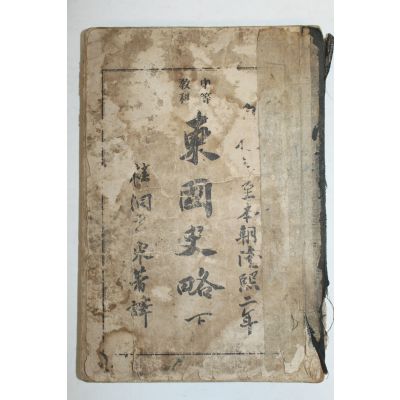 至本朝隆熙二年
中等
教科
東國史略 下
洞玄采著譯